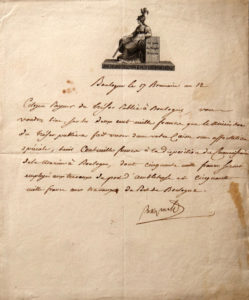 Boulogne le 17 Brumaire an 12
Citoyen Payeur du Trésor Public à Boulogne, vous
voudrez bien, sur les deux cent mille francs que le Ministre
du Trésor public a fait dans votre Caisse
spéciale, cent mille francs à la disposition du
de la Marine à Boulogne, dont cinquante mille francs
employés aux travaux du port d'Ambleteuse et cinquante
mille francs aux travaux du Port de Boulogne.
Bonaparte